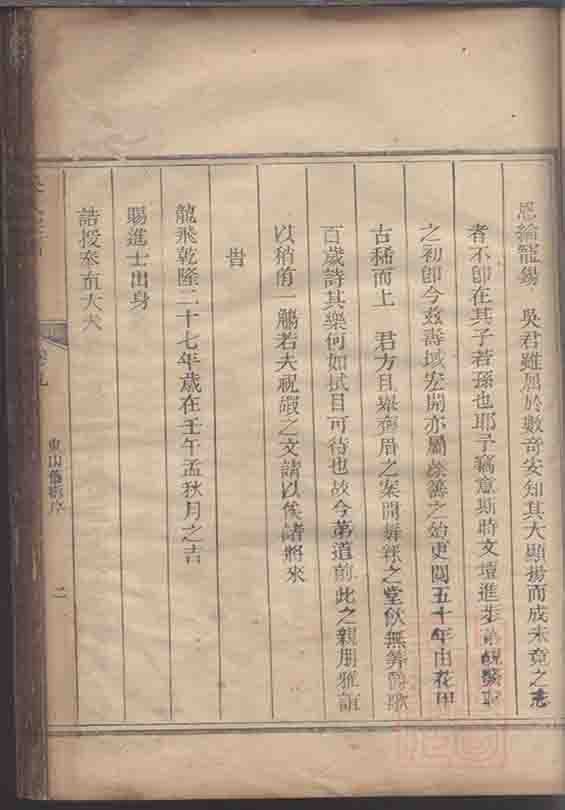 恩綸寵錫 吳君雖屈於數奇安知其大顯揚而成未竟之志
者不即在其子若孫也耶予竊意斯時文壇進步
之初即今兹壽域宏開亦屬餘善之始更閱五十年由花甲
古稀而上 君方且舉齊眉之案開舞綵之堂飲無算爵歌
百歲詩其樂何如拭目可待也故今第道前此之親朋雅誼
以稍侑一觴若夫祝嘏之文請以俟諸將來
旹
龍飛乾隆二十七年歲在壬午孟秋月之吉
賜進士出身
誥授奉直大夫
卷九
東山 序
二